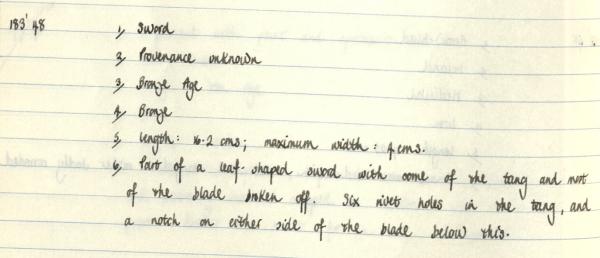 183'48
1, Sword
2, Provenance unknown
3, Bronze Age
4, Bronze
5, Length: 16.2 cms; maximum width: 4 cms.
6, Part of a leaf-shaped sword with some of the tang and most
of the blade broken off. Six rivet holes in the tang, and
a notch on either side of the blade below this.